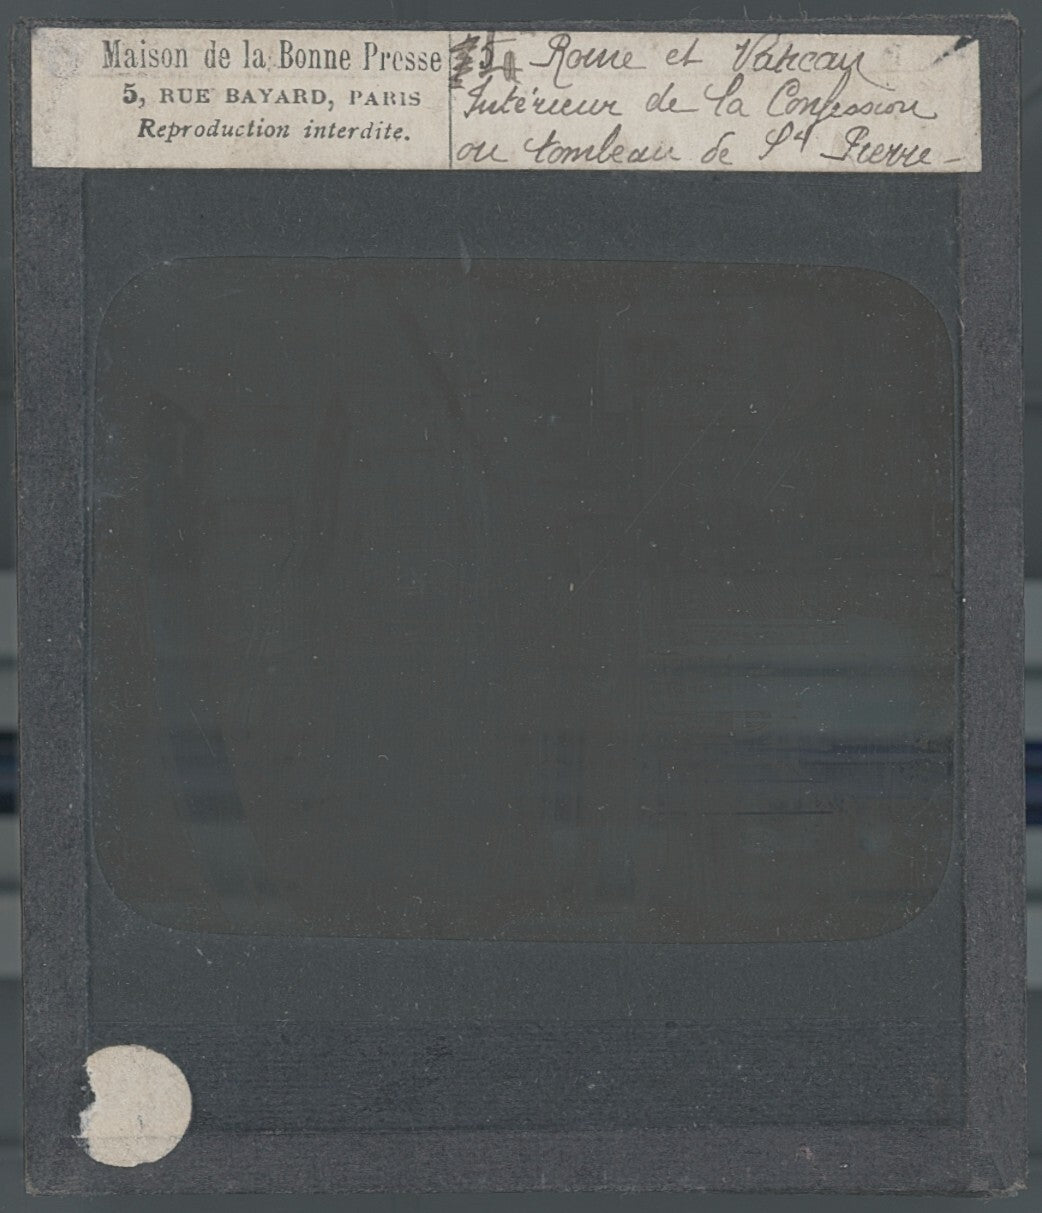 Maison de la Bonne Presse
5, RUE BAYARD, PARIS
Reproduction interdite.
Rome et Vatican
Intérieur de la Confession
ou tombeau de St Pierre -